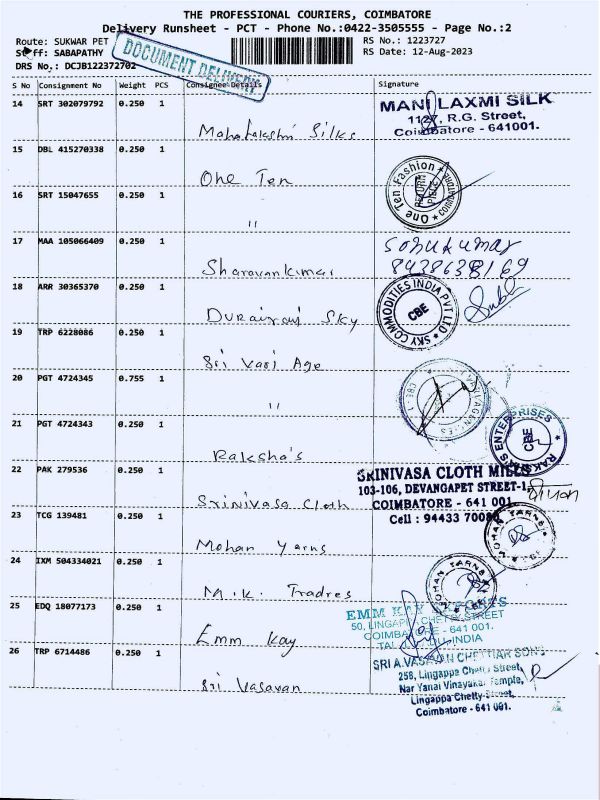 THE PROFESSIONAL COURIERS, COIMBATORE
Delivery Runsheet - PCT - Phone No.:0422-3505555 - Page No.:2
Route: SUKWAR PET
RS No.: 1223727
Staff: SABAPATHY
RS Date: 12-Aug-2023
DRS No.: DCJB122372702
DOCUMENT DELIVERY
S No Consignment No Weight PCS Consignee Details Signature
14 SRT 302079792 0.250 1
Mahalakshmi Silks
LAXMI SILK
1127, R.G. Street,
Coimbatore - 641001.
15 DBL 415270338 0.250 1
One Ten
One Ten Fashion
16 SRT 15047655 0.250 1
"
17 MAA 105066409 0.250 1
Sharavankumar
Sonukumar
18 ARR 30365370 0.250 1
Durairaj Sky
SKY COMMODITIES INDIA PVT LTD
CBE
19 TRP 6228086 0.250 1
Sri Vari Age
20 PGT 4724345 0.755 1
"
21 PGT 4724343 0.250 1
Raksha's
RAKSHA'S ENTERPRISES
CBE
22 PAK 279536 0.250 1
Srinivasa Cloth
SRINIVASA CLOTH MILLS
103-106, DEVANGAPET STREET-1,
COIMBATORE - 641 001
Cell : 94433
23 TCG 139481 0.250 1
Mohan Yarns
MOHAN YARNS
24 IXM 504334021 0.250 1
M.K. Tradres
MOHAN YARNS
25 EDQ 18077173 0.250 1
Emm Kay
EMM KAY EXPORTS
50, LINGAPPA CHETTY STREET
COIMBATORE - 641 001.
TAMILNADU, INDIA
26 TRP 6714486 0.250 1
Sri Vasavan
SRI A.VASAVAN CHETTIAR SONS
258, Lingappa Chetty Street,
Nar Yanai Vinayakar Temple,
Lingappa Chetty Street,
Coimbatore - 641 001.